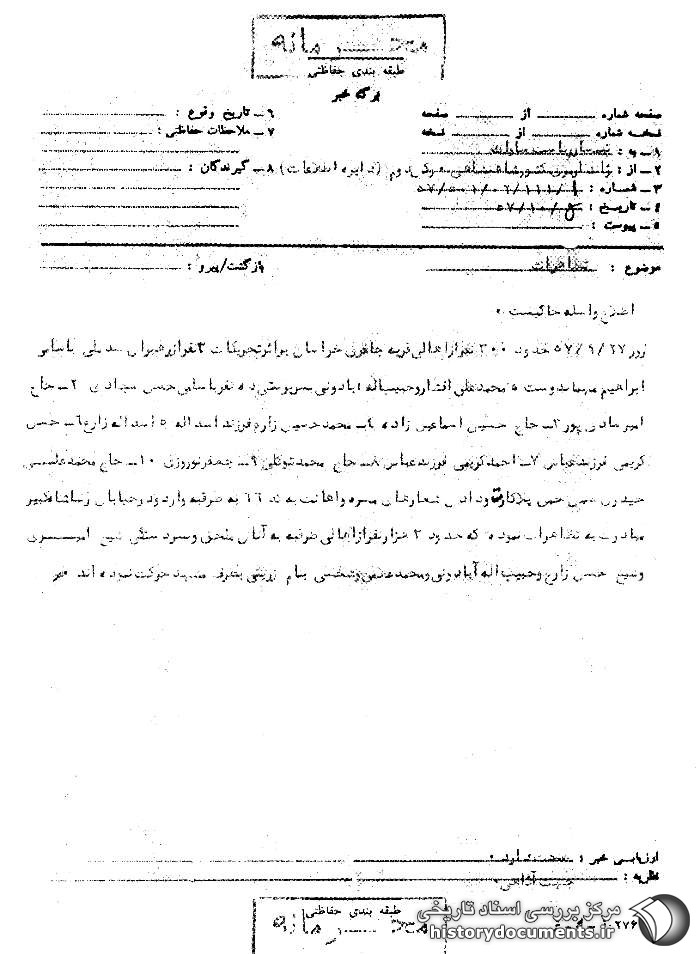 محرمانه
طبقه بندی حفاظتی
برگه خبر
صفحه شماره از صفحه
نسخه شماره از نسخه
۱ـ به :
۲ـ از : (دایره اطلاعات)
۳ـ شماره :
۴ـ تاریخ : ۵۷/۱۰/
۵ـ پیوست :
۶ـ تاریخ وقوع :
۷ـ ملاحظات حفاظتی :
۸ـ گیرندگان :
موضوع : تظاهرات
بازگشت/پیرو :
اطلاع واصله حاکیست
روز ۵۷/۹/۲۷ حدود ۳۰۰ نفر از اهالی قریه جاغرق خراسان بر اثر تحریکات ۳ نفر از رهبران محلی باسامی
ابراهیم میهماندوست محمدعلی افشار و حبیب اله آبادونی بسرپرستی ده نفر باسامی حسن سجادی ۲ـ حاج
امیر پور ۳ـ حاج حسین اسماعیل زاده ۴ـ محمد حسین زارع فرزند اسداله ۵ اسداله زارع ۶ـ حسن
کریمی فرزند عباس ۷ـ احمد کریمی فرزند عباس ۸ـ حاج محمد توکلی ۹ـ جعفر نوروزی ۱۰ـ حاج محمدعلی
حیدری ضمن حمل پلاکارت و دادن شعارهای مضره و اهانت به به طرقبه وارد و در خیابان رضاشاه کبیر
مبادرت به تظاهرات نموده که حدود ۲ هزار نفر از اهالی طرقبه به آنان ملحق و بسردستگی شیخ
و شیخ حسن زارع و حبیب اله آبادونی و محمد و شخصی بنام بطرف مشهد حرکت نموده اند
ارزیابی خبر : صحت دارد
نظریه :
طبقه بندی حفاظتی
محرمانه
مرکز بررسی اسناد تاریخی
historydocuments.ir
۲۷۶